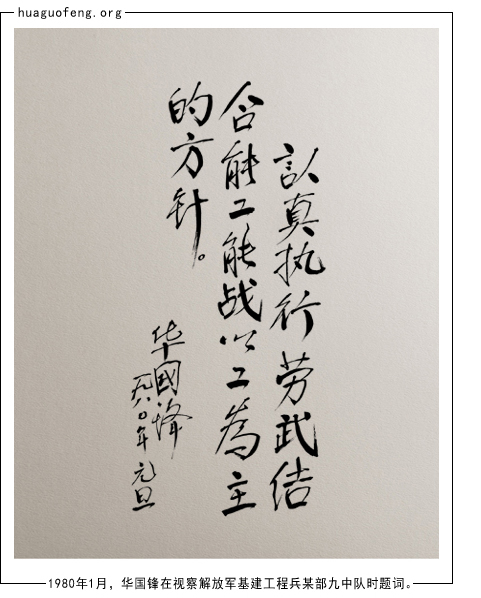 huaguofeng.org
認真执行劳武结
合能工能战以工為主
的方针。
华國锋
一九八〇年元旦
1980年1月，华国锋在视察解放军基建工程兵某部九中队时题词。